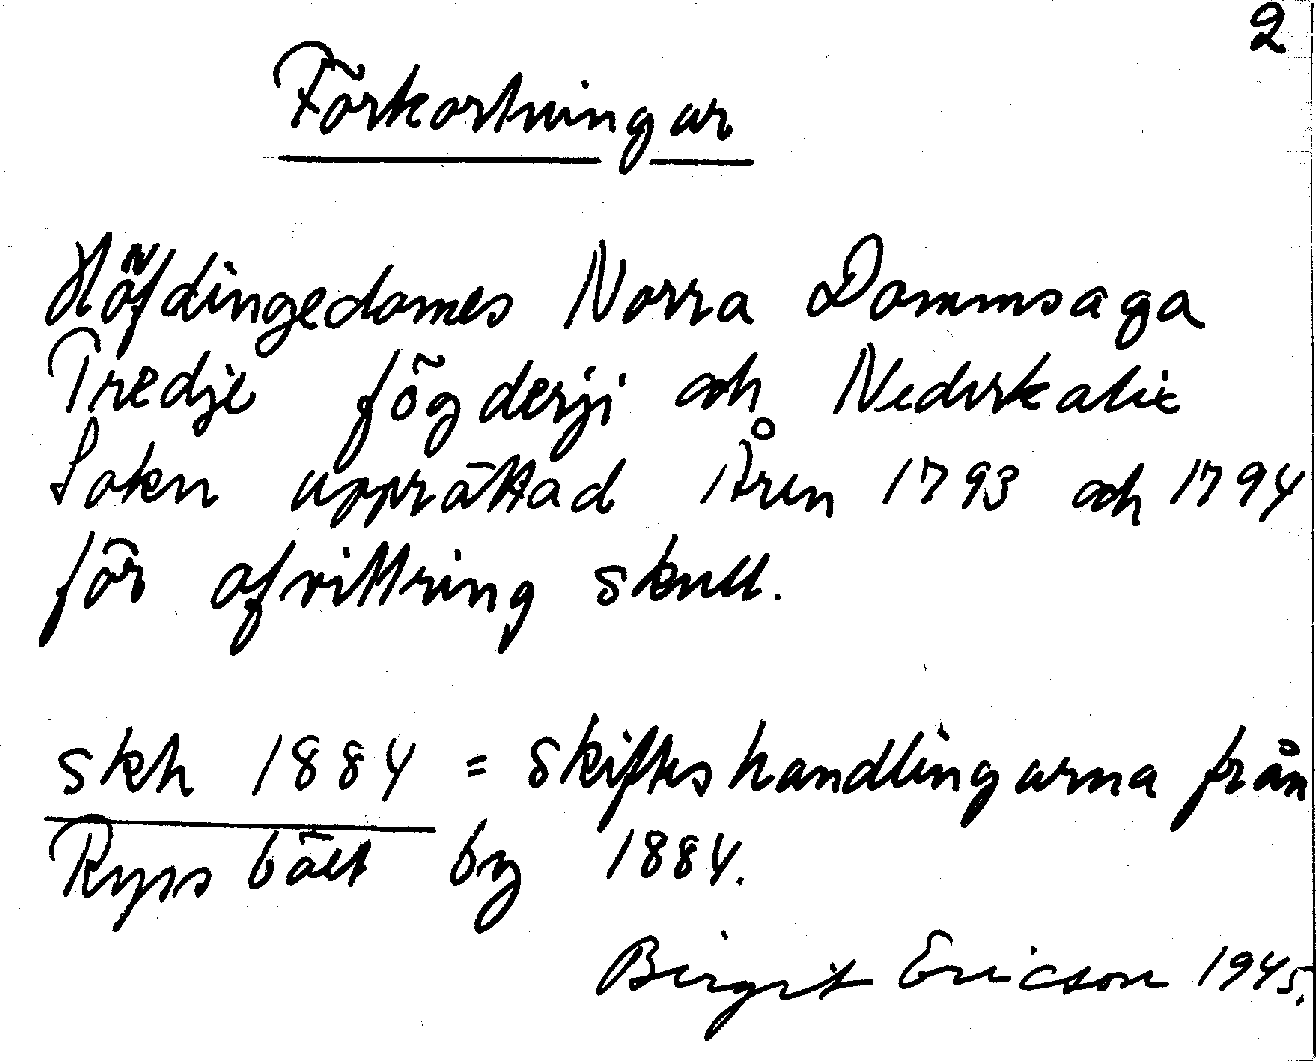 2
Förkortningar
Höfdingedomes Norra Dommsaga
Tredje fögderji och Nederkalix
Sokn upprättad Åren 1793 och 1794
för afvittring skull.
skh 1884 = skifteshandlingarna från
Ryssbält by 1884.
Birgit Ericson 1945.